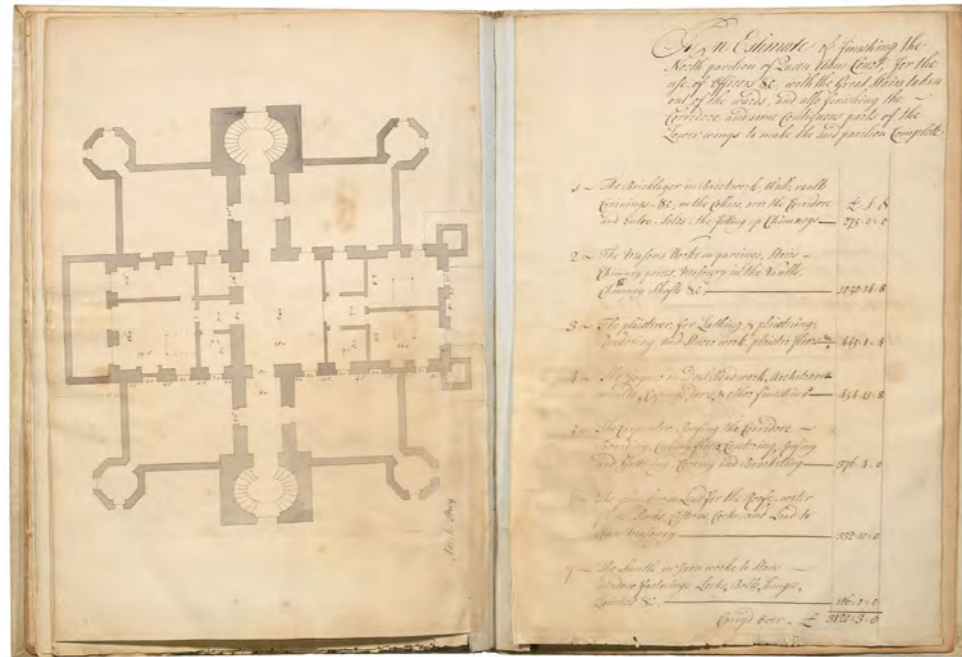 An Estimate of finishing the
North pavilion of Queen Anns Court, for the
use of Officers &c, with the Great Stairs taken
out of the wards, and also finishing the
Corridore and some Contiguous parts of the
Lower wings to make the said pavilion Complete
£ S D
1 The Bricklayer in Brickwork Wall, vault
&c, in the Cellars, over the Corridore
and the fitting up Chimneys 373=0=0
2 The Masons Work in paveings, Stairs
Chimney peices, Masonry in the Vaults
Chimney Shafts &c
3 The plaisterer, for Lathing & plaistring
Rendering and Stucco work, plaister floors 445=1=4
4 The Joyner in Deal Bead work, Architraves
doors, & other finishings 454=13=8
5 The Carpenter, roofing the Corridore
Boarding, Centring, roofing
and Guttering, Coveing and Bracketing 376=4=0
6 The plumber in Lead for the Roofe, water
pipes, Sinks, Cisterns, Cocks, and Lead to
Masonry 332=10=0
7 The Smith in Iron worke to Stairs
window fastnings Locks, Bolts, hinges,
Latches &c 186=0=0
Carryd over £